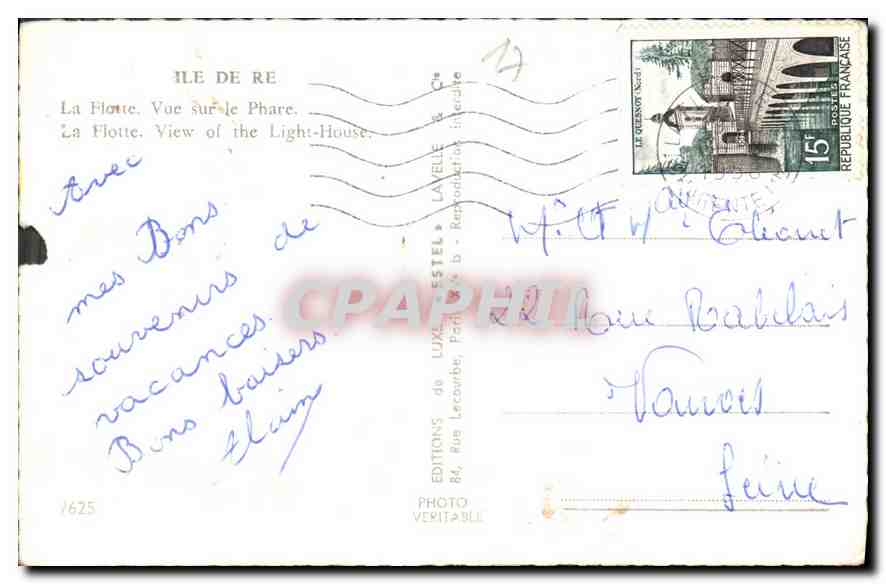 ILE DE RE
La Flotte. Vue sur le Phare.
La Flotte. View of the Light-House.
Avec
mes Bons
souvenirs de
vacances.
Bons baisers
Alain
7625
EDITIONS de LUXE ESTEL LAVELLE & Cie
84, Rue Lecourbe, Paris XVe b - Reproduction interdite
PHOTO
VERITABLE
17
LE QUESNOY (Nord)
15F
POSTES
REPUBLIQUE FRANÇAISE
22 Rue Rabelais
Vanves
Seine
CPAPHIL